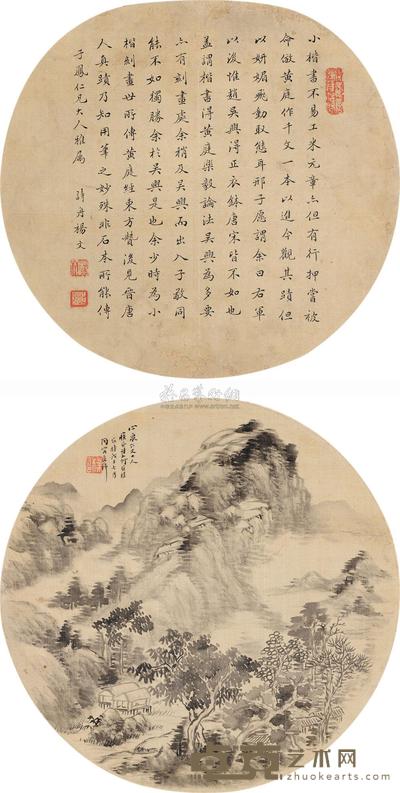 小楷書不易工米元章亦但有行押嘗被
命倣黃庭作千文一本以進今觀其蹟但
以妍媚飛動取態耳邢子愿謂余曰右軍
以後惟趙吳興得正衣鉢唐宋皆不如也
蓋謂楷書得黃庭樂毅論法吳興為多要
亦有刻畫處余稍及吳興而出入子敬同
能不如獨勝余於吳興是也余少時為小
楷刻畫世所傳黃庭經東方贊後見晉唐
人真蹟乃知用筆之妙殊非石本所能傳
子鳳仁兄大人雅屬
楊文
心泉仁丈大人
zhuokearts.com